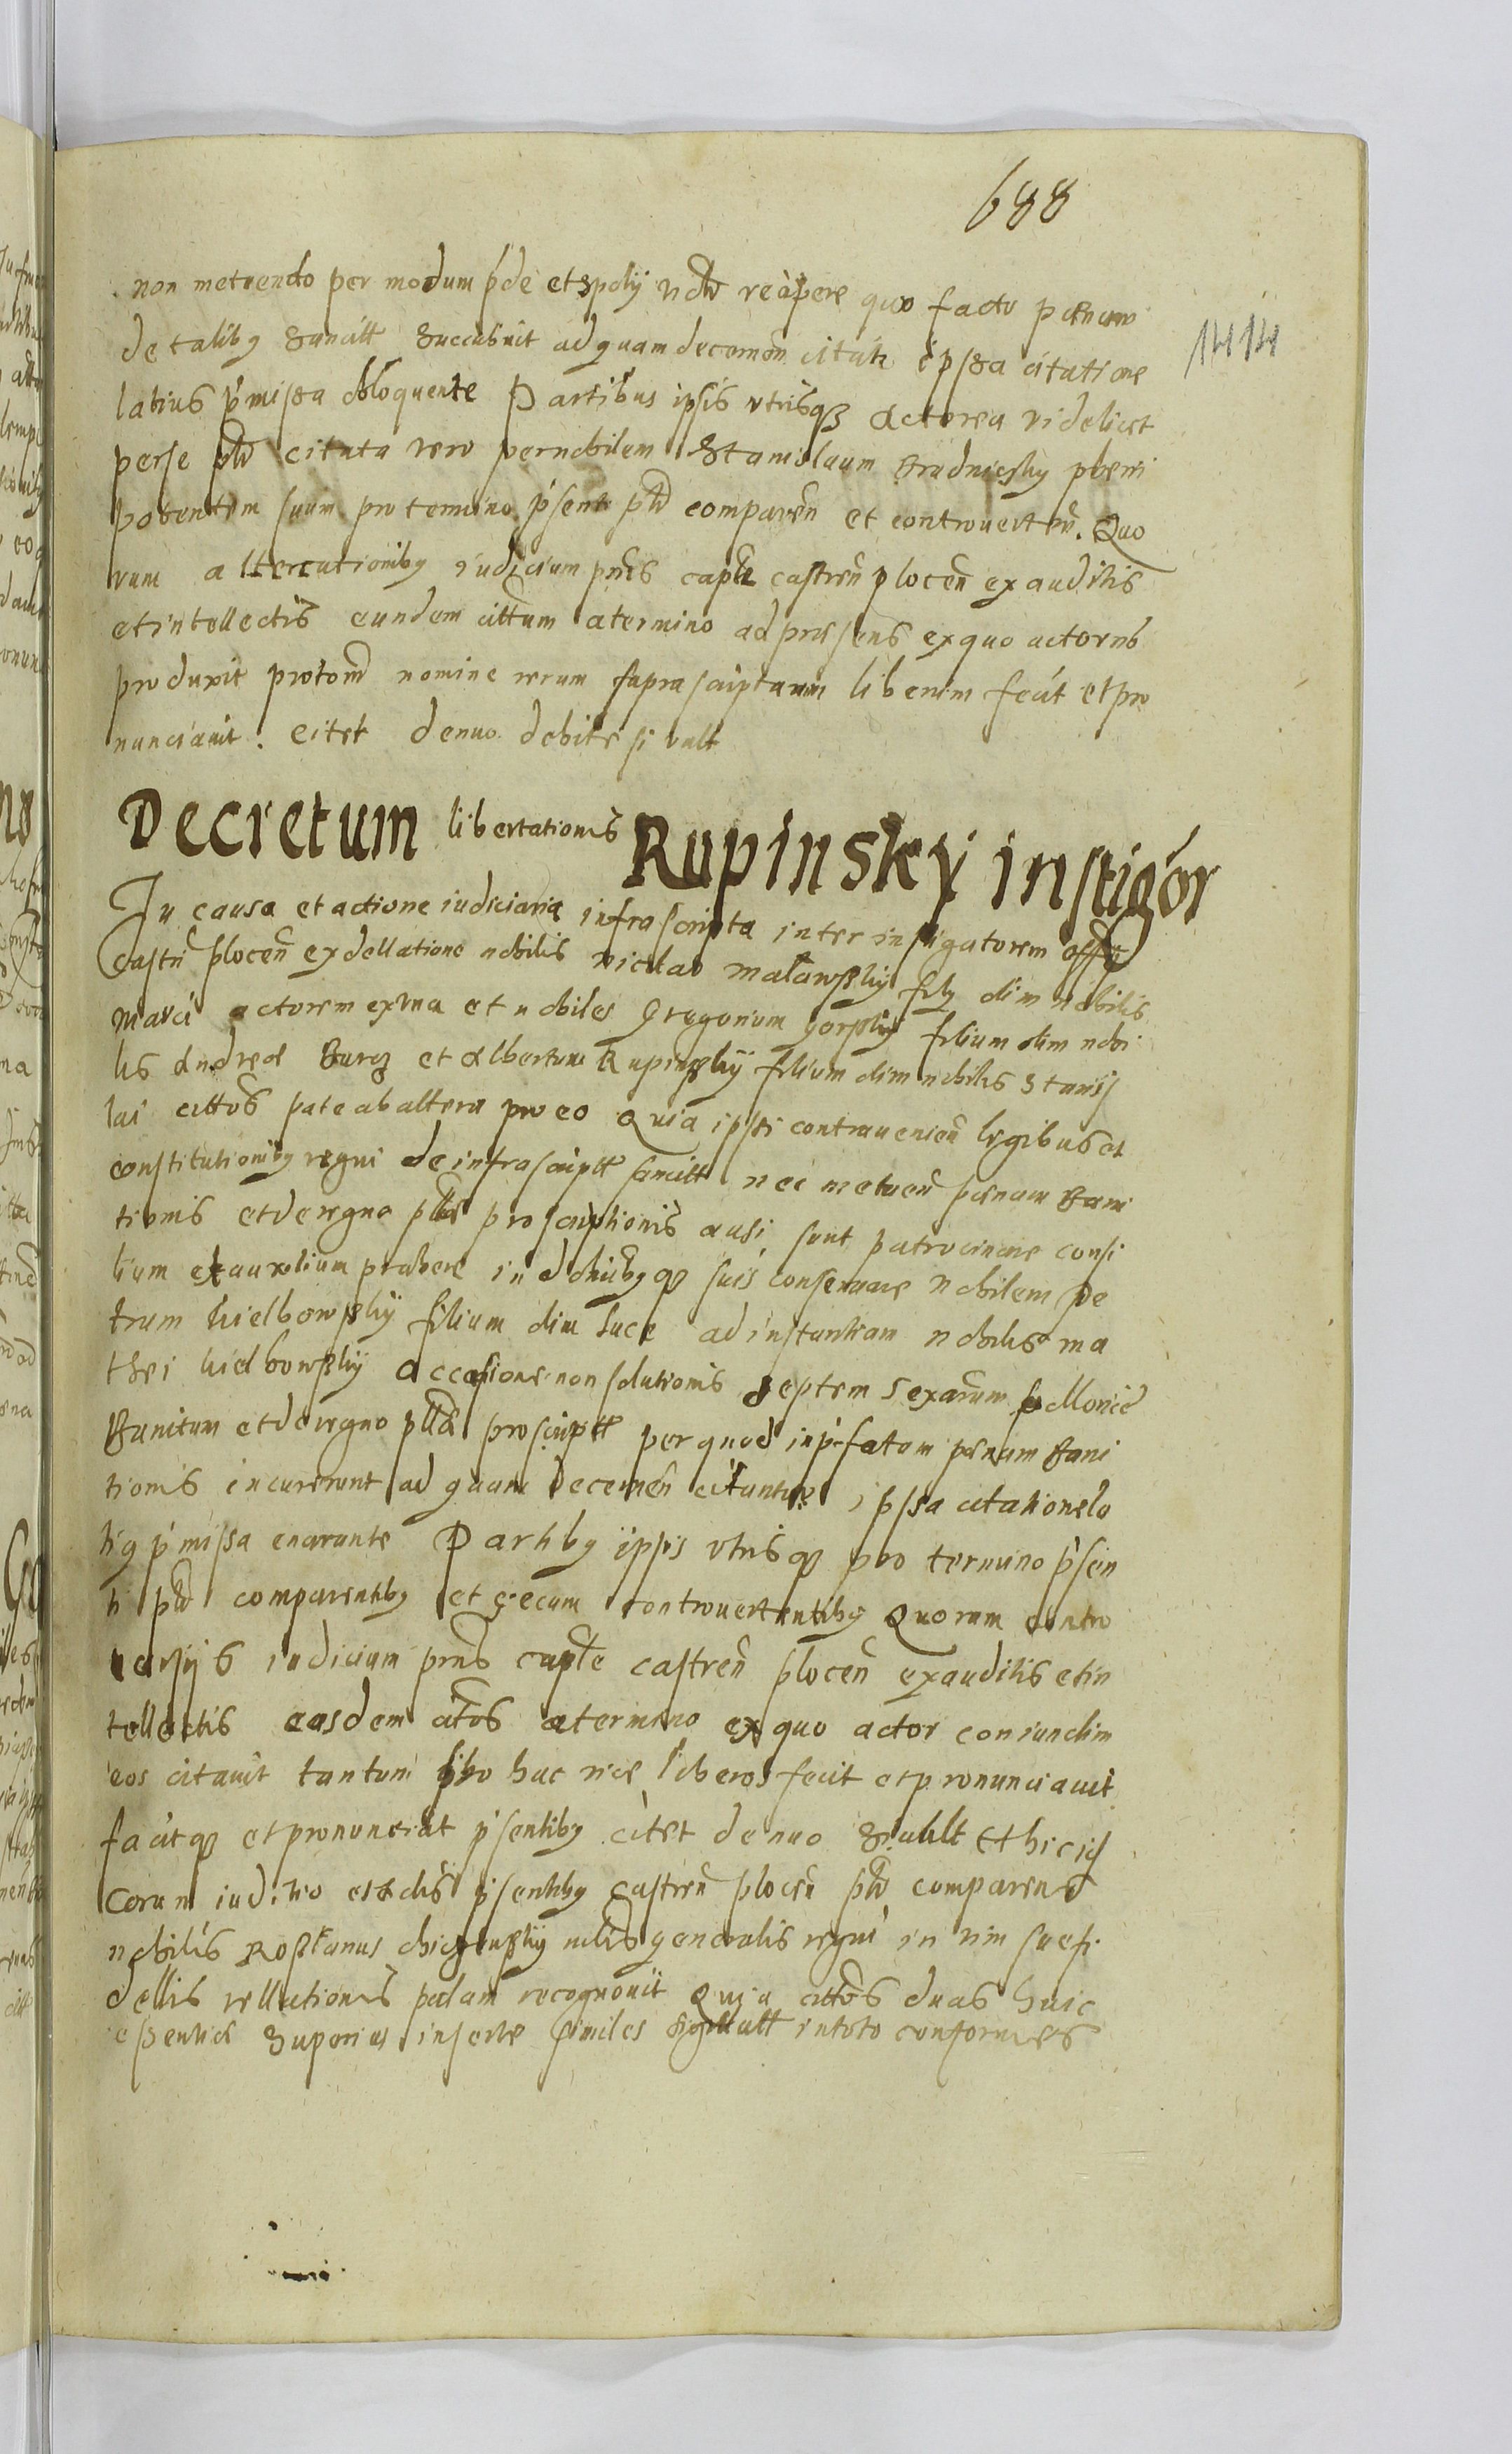 688
1414
non metuendo per modum pde et spolÿ ndw reàpere quo facto pænam
de talibg sancitt succubuit ad quam decernen citatr ipssa citatione
latius pmissa obloquente Partibus ipsis vtrisqз actorea videlicet
perse ptr citata vero pernobilem Stanislaum Grudniesky pleni
potentem suum pro termino psenti ptr comparen et controuerten. Quo
rum altercutionibg iudicium pns capte castren plocen exauditis
et intellectis eundem cittum a termino ad præsens ex quo actor nō
produxit protom nomine rerum suprascriptarum liberum fecit et pro
nunciauit. citet denuo debite si vult
Decretum libertationis Rupinsky instigor
In causa et actione iudiciaria infrascripta inter instigatorem offy
Castri plocen ex dellatione nobilis nicolao malawskÿ filÿ olim nobilis
marci actorem ex vna et nobiles Gregorium gorskÿ filium olim nobi
lis Andreæ Burz et Albertum Rupinskÿ filium olim nobilis Stanis
lai cittos pate ab altera pro eo Quia ipssi contrauenien legibus et
constitutionibg regni de infrascriptt sancitt nec metuen pænam Bani
tionis et de regno pllæ proscriptionis ausi sunt patrocinare consi
lium et auxilium præbere in domibgqз suis conseruare nobilem Pe
trum kielbowskÿ filium olim Luce ad instantiam nobilis ma
thei kielbowskÿ occasione non solutionis septem sexarum polloniæ
Banitum et de regno pllæ proscriptt per quod in pfatam pænam Bani
tionis incurerunt ad quam decernen citantur ipssa citatione la
tig pmissa enarante Partibg ipsis vtrisqз pro termino psen
ti ptr comparentibg et secum controuertentibg Quorum contro
uersÿs iudicium pns capte castren plocen exauditis et in
tellectis easdem citos a termino ex quo actor coniunctim
eos citauit tantum pro hac vice liberos fecit et pronunciauit
facitqз et pronunciat psentibg citet denuo si vult Et hic id
coram iuditio et actis psentibg Castren plocen ptr comparens
nobilis Rostanus chiczewskÿ mlis generalis regni in vim sue fi
dellis rellationis palam recognouit Quia cittos duas huic
essentiæ superius inserte similes sigillatt in toto conformes